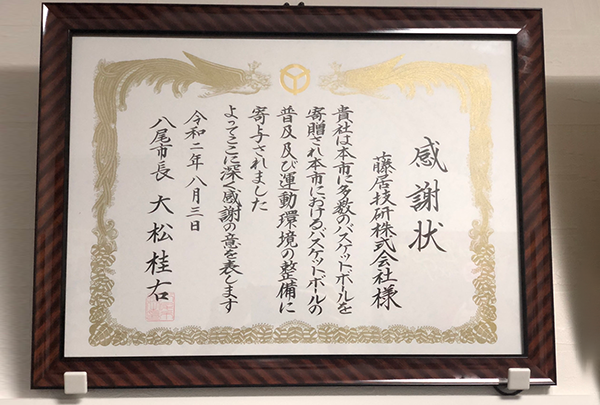 感謝状
藤居技研株式会社様
貴社は本市に多数のバスケットボールを
寄贈され本市におけるバスケットボールの
普及及び運動環境の整備に
寄与されました
よってここに深く感謝の意を表します
令和二年八月三日
八尾市長 大松桂右